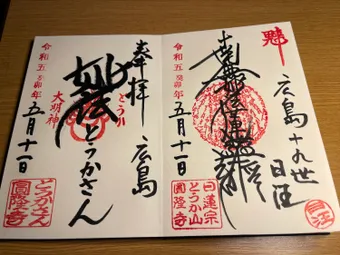 広島 十九世
南無妙法蓮華経
令和五癸卯年
五月十一日
日蓮宗
とうか山
圓隆寺
奉拝 広島
とうか
とうかさん
大明神
令和五癸卯年
五月十一日
とうかさん
圓隆寺